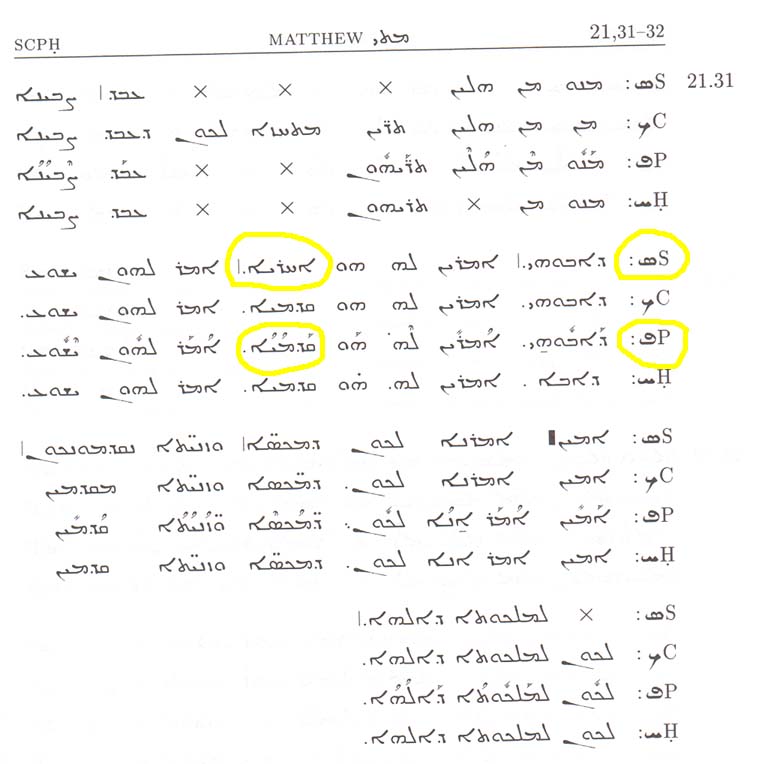 SCPḤ MATTHEW ܡܬܝ 21,31–32
21.31 Sܣ: ܡܢܘ ܡܢ ܗܠܝܢ × × × ܥܒܕ| ܨܒܝܢܐ
Cܟ: ܡܢ ܡܢ ܗܠܝܢ ܬܪ̈ܝܢ ܡܬܚܙܐ ܠܟܘܢ ܕܥܒܕ ܨܒܝܢܐ
Pܦ: ܡܰܢܽܘ ܡܶܢ ܗܳܠܶܝܢ ܬܪ̈ܰܝܗܽܘܢ × × ܥܒܰܕ ܨܶܒܝܳܢܳܐ
Ḥܚ: ܡܢܘ ܡܢ × ܬܪ̈ܝܗܘܢ × × ܥܒܕ ܨܒܝܢܐ
Sܣ: ܕܐܒܘܗܝ.| ܐܡܪܝܢ ܠܗ ܗܘ ܐܚܪܝܐ.| ܐܡܪ ܠܗܘܢ ܝܫܘܥ
Cܟ: ܕܐܒܘܗܝ. ܐܡܪܝܢ ܠܗ ܗܘ ܩܕܡܝܐ. ܐܡܪ ܠܗܘܢ ܝܫܘܥ.
Pܦ: ܕܰܐܒܽܘܗܝ. ܐܳܡܪܺܝܢ ܠܶܗ ܗܰܘ ܩܰܕܡܳܝܳܐ. ܐܳܡܰܪ ܠܗܽܘܢ ܝܶܫܽܘܥ.
Ḥܚ: ܕܐܒܐ . ܐܡܪܝܢ ܠܗ. ܗܘ̇ ܩܕܡܝܐ. ܐܡܪ ܠܗܘܢ ܝܫܘܥ.
Sܣ: ܐܡܝܢ ܐܡܪܢܐ ܠܟܘܢ ܕܡܟܣ̈ܐ| ܘܙܢܝ̈ܬܐ ܢܩܕܡܘܢܟܘܢ|
Cܟ: ܐܡܝܢ ܐܡܪܢܐ ܠܟܘܢ. ܕܡ̈ܟܣܐ ܘܙܢܝ̈ܬܐ ܡܩܕܡܝܢ
Pܦ: ܐܰܡܺܝܢ ܐܳܡܰܪ ܐ̱ܢܳܐ ܠܟܽܘܢ. ܕ̈ܡܳܟܣܶܐ ܘ̈ܙܳܢܝܳܬܳܐ ܩܳܕܡܺܝܢ
Ḥܚ: ܐܡܝܢ ܐܡܪ ܐܢܐ ܠܟܘܢ. ܕܡܟܣ̈ܐ ܘܙܢܝ̈ܬܐ ܩܕܡܝܢ
Sܣ: × ܠܡܠܟܘܬܐ ܕܐܠܗܐ.|
Cܟ: ܠܟܘܢ ܠܡܠܟܘܬܐ ܕܐܠܗܐ.
Pܦ: ܠܟܽܘܢ ܠܡܰܠܟܽܘܬܳܐ ܕܰܐܠܳܗܳܐ.
Ḥܚ: ܠܟܘܢ ܠܡܠܟܘܬܐ ܕܐܠܗܐ.